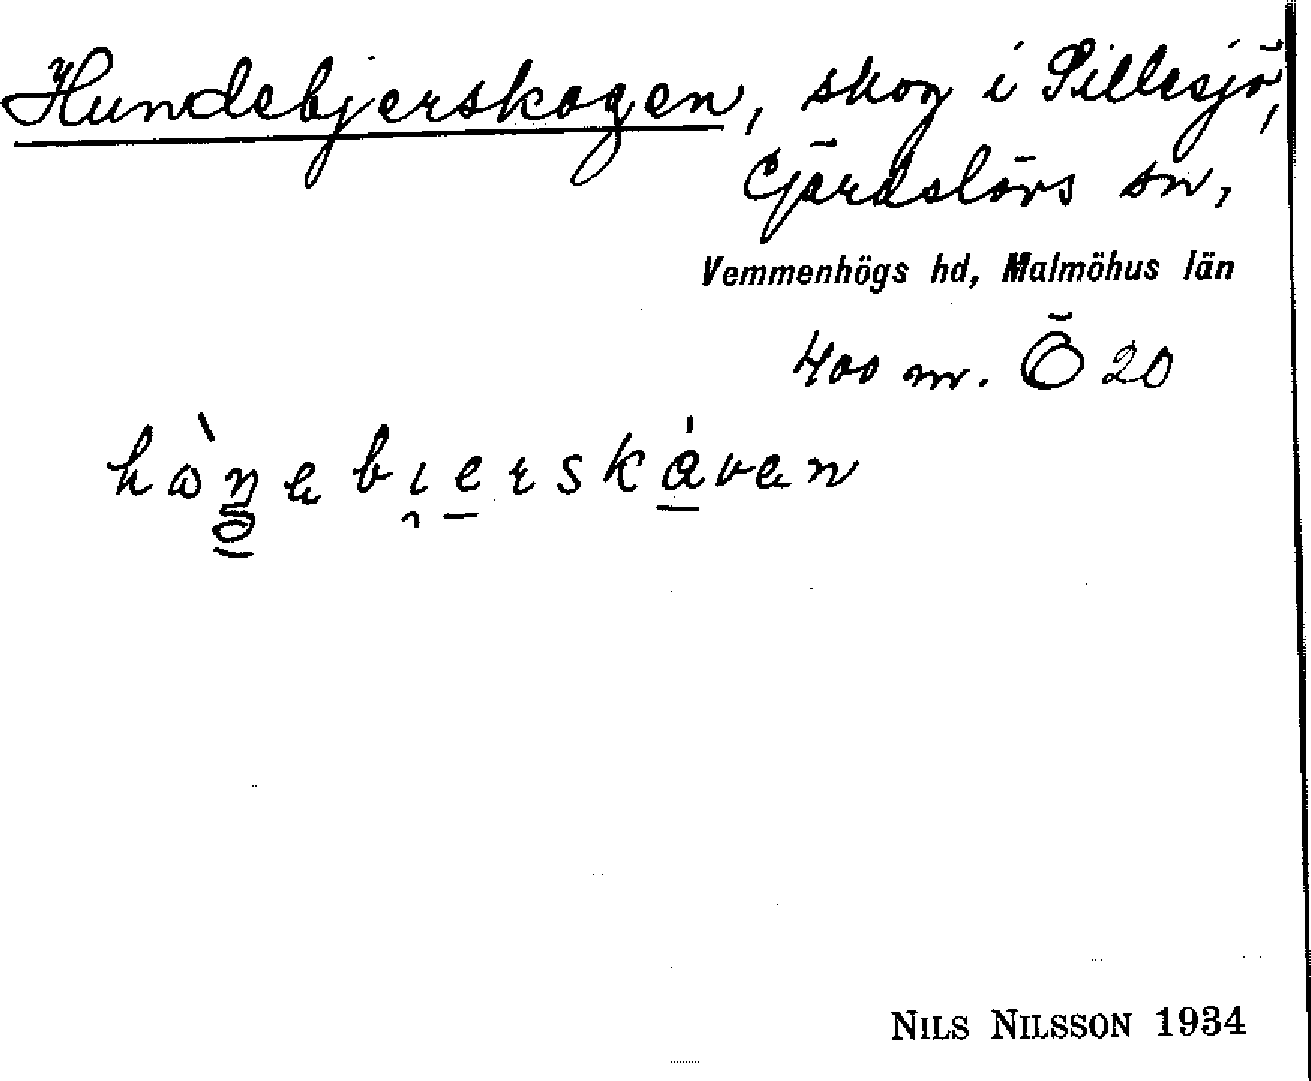 Hundebjerskogen, skog i Sillesjö,
Gärdslövs sn,
Vemmenhögs hd, Malmöhus län
400 m. Ö 20
NILS NILSSON 1934